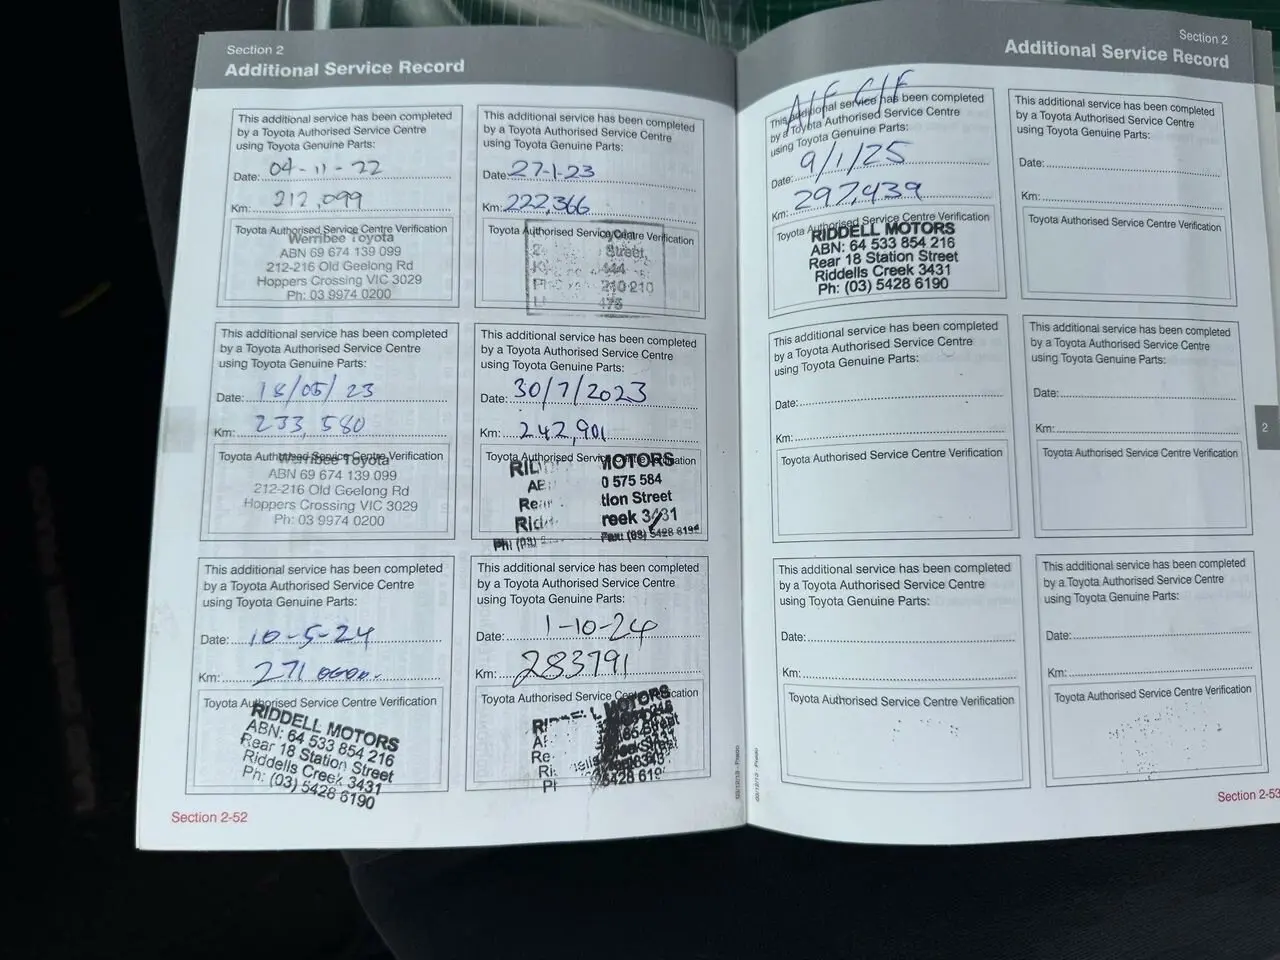 Section 2
Additional Service Record
This additional service has been completed
by a Toyota Authorised Service Centre
using Toyota Genuine Parts:
Date: 04-11-22
Km: 212,099
Toyota Authorised Service Centre Verification
Werribee Toyota
ABN 69 674 139 099
212-216 Old Geelong Rd
Hoppers Crossing VIC 3029
Ph: 03 9974 0200
This additional service has been completed
by a Toyota Authorised Service Centre
using Toyota Genuine Parts:
Date: 27-1-23
Km: 222,366
Toyota Authorised Service Centre Verification
Street,
444
210 210
This additional service has been completed
by a Toyota Authorised Service Centre
using Toyota Genuine Parts:
Date: 18/05/23
Km: 233,580
Toyota Authorised Service Centre Verification
Werribee Toyota
ABN 69 674 139 099
212-216 Old Geelong Rd
Hoppers Crossing VIC 3029
Ph: 03 9974 0200
This additional service has been completed
by a Toyota Authorised Service Centre
using Toyota Genuine Parts:
Date: 30/7/2023
Km: 242,901
Toyota Authorised Service Centre Verification
MOTORS
0 575 584
Street
3431
Ph: (03)
Fax: (03) 5428 6190
This additional service has been completed
by a Toyota Authorised Service Centre
using Toyota Genuine Parts:
Date: 10-5-24
Km: 271
Toyota Authorised Service Centre Verification
RIDDELL MOTORS
ABN: 64 533 854 216
Rear 18 Station Street
Riddells Creek 3431
Ph: (03) 5428 6190
This additional service has been completed
by a Toyota Authorised Service Centre
using Toyota Genuine Parts:
Date: 1-10-24
Km: 283791
Toyota Authorised Service Centre Verification
MOTORS
5428 619
Section 2-52
Section 2
Additional Service Record
A/F C/F
This additional service has been completed
by a Toyota Authorised Service Centre
using Toyota Genuine Parts:
Date: 9/1/25
Km: 297,439
Toyota Authorised Service Centre Verification
RIDDELL MOTORS
ABN: 64 533 854 216
Rear 18 Station Street
Riddells Creek 3431
Ph: (03) 5428 6190
This additional service has been completed
by a Toyota Authorised Service Centre
using Toyota Genuine Parts:
Date:
Km:
Toyota Authorised Service Centre Verification
This additional service has been completed
by a Toyota Authorised Service Centre
using Toyota Genuine Parts:
Date:
Km:
Toyota Authorised Service Centre Verification
This additional service has been completed
by a Toyota Authorised Service Centre
using Toyota Genuine Parts:
Date:
Km:
Toyota Authorised Service Centre Verification
This additional service has been completed
by a Toyota Authorised Service Centre
using Toyota Genuine Parts:
Date:
Km:
Toyota Authorised Service Centre Verification
This additional service has been completed
by a Toyota Authorised Service Centre
using Toyota Genuine Parts:
Date:
Km:
Toyota Authorised Service Centre Verification
2
Section 2-53